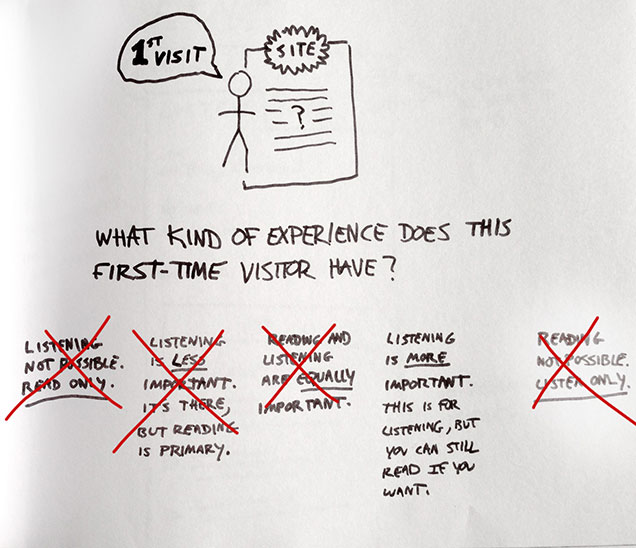 1ST
VISIT
SITE
?
WHAT KIND OF EXPERIENCE DOES THIS
FIRST-TIME VISITOR HAVE?
LISTENING
NOT POSSIBLE.
READ ONLY.
LISTENING
IS LESS
IMPORTANT.
IT'S THERE,
BUT READING
IS PRIMARY.
READING AND
LISTENING
ARE EQUALLY
IMPORTANT.
LISTENING
IS MORE
IMPORTANT.
THIS IS FOR
LISTENING, BUT
YOU CAN STILL
READ IF YOU
WANT.
READING
NOT POSSIBLE.
LISTEN ONLY.